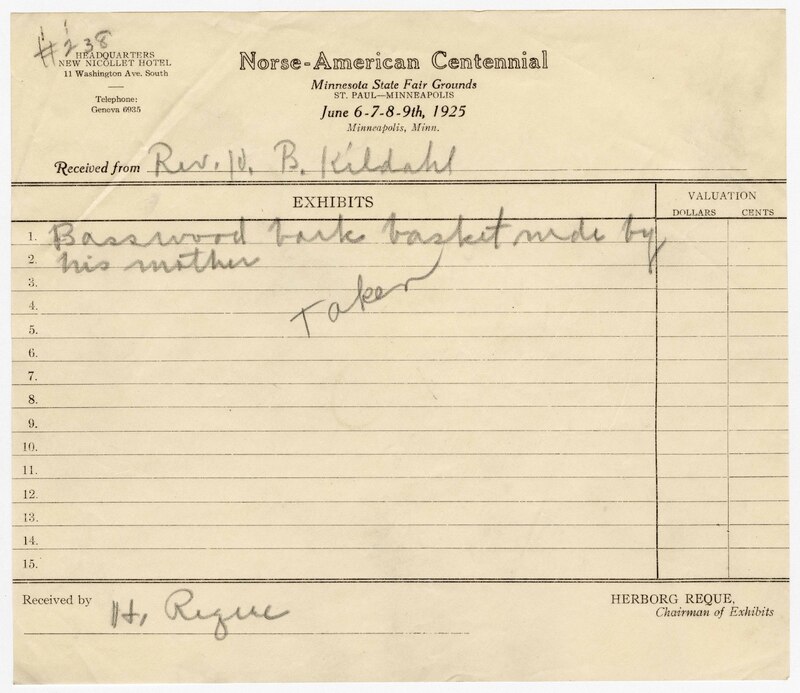 #238
HEADQUARTERS
NEW NICOLLET HOTEL
11 Washington Ave. South
Telephone:
Geneva 6935
Norse-American Centennial
Minnesota State Fair Grounds
ST. PAUL—MINNEAPOLIS
June 6-7-8-9th, 1925
Minneapolis, Minn.
Received from Rev. H. B. Kildahl
EXHIBITS
VALUATION
DOLLARS CENTS
1. Basswood bark basket made by
2. his mother
3.
Taken
4.
5.
6.
7.
8.
9.
10.
11.
12.
13.
14.
15.
Received by H. Reque
HERBORG REQUE,
Chairman of Exhibits